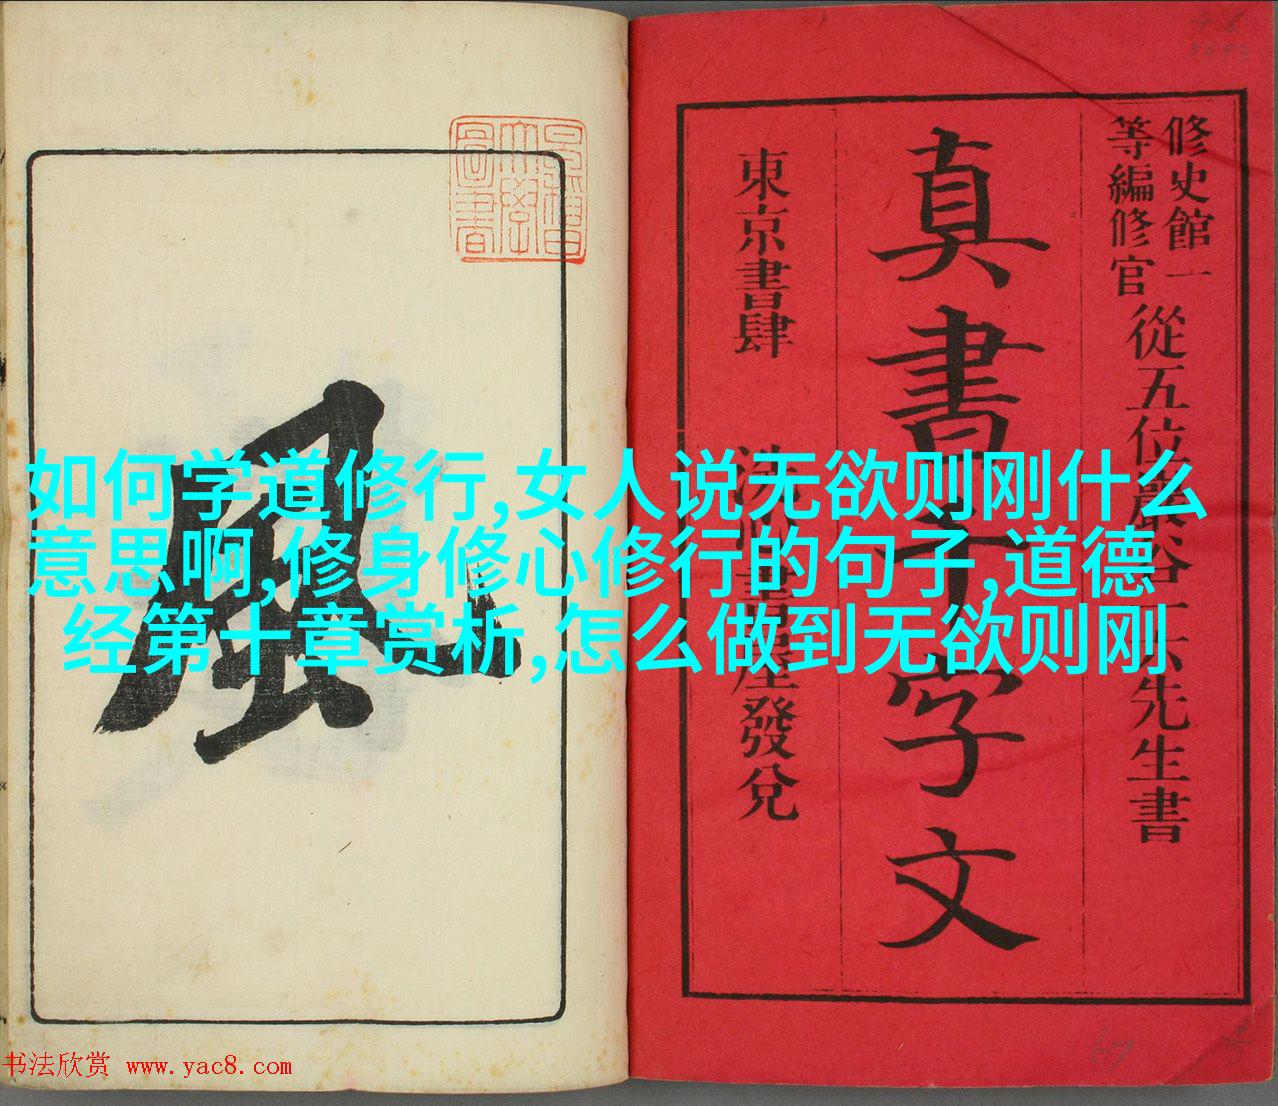 如何学道修行,女人说无欲则刚什么
意思啊,修身修心修行的句子,道德
经第十章赏析,怎么做到无欲则刚
修史館一
等編修官
從五位嚴谷一六先生書
真書千字文
東京書肆
發兌
風
書法欣赏 www.yac8.com